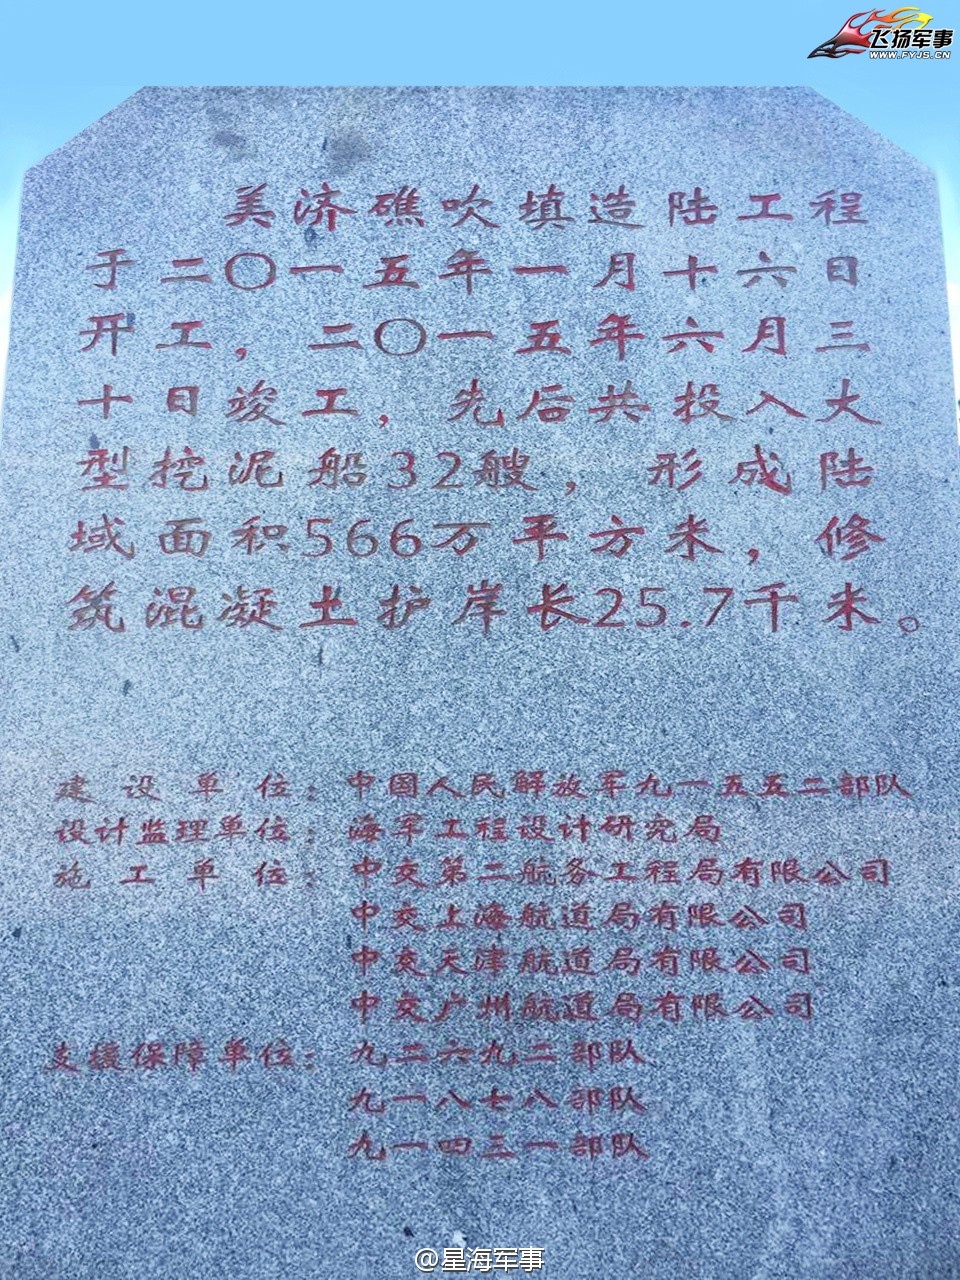 飞扬军事
WWW.FYJS.CN
美济礁吹填造陆工程
于二〇一五年一月十六日
开工，二〇一五年六月三
十日竣工，先后共投入大
型挖泥船32艘，形成陆
域面积566万平方米，修
筑混凝土护岸长25.7千米。
建设单位：中国人民解放军九一五五二部队
设计监理单位：海军工程设计研究局
施工单位：中交第二航务工程局有限公司
中交上海航道局有限公司
中交天津航道局有限公司
中交广州航道局有限公司
支援保障单位：九二六九二部队
九一八七八部队
九一四三一部队
@星海军事